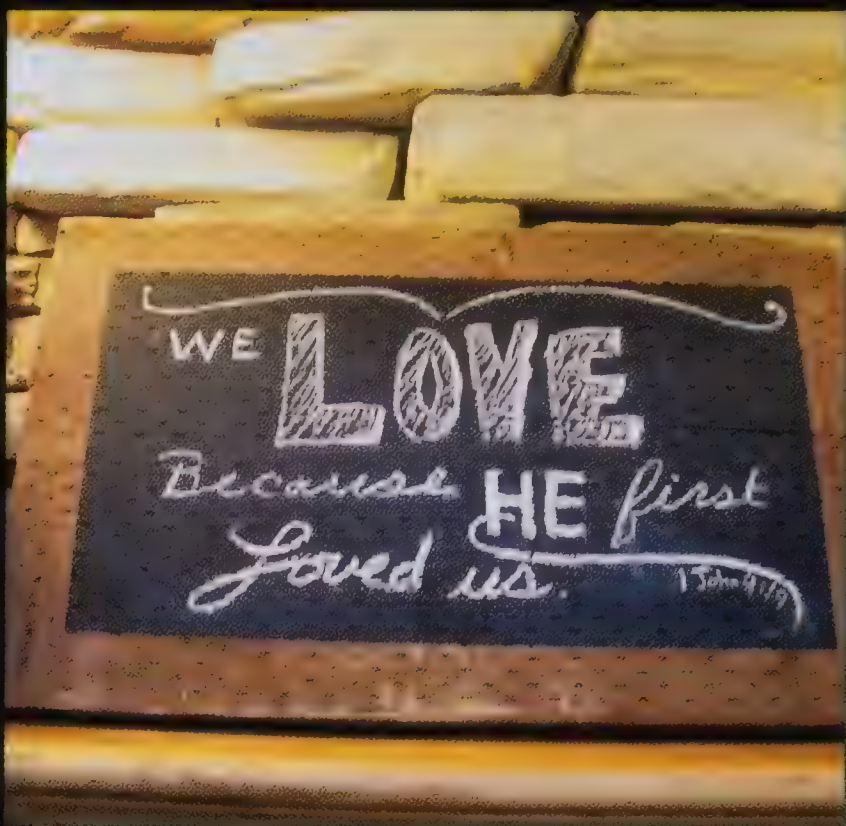 WE LOVE
Because HE first
Loved us.
1 John 4:19